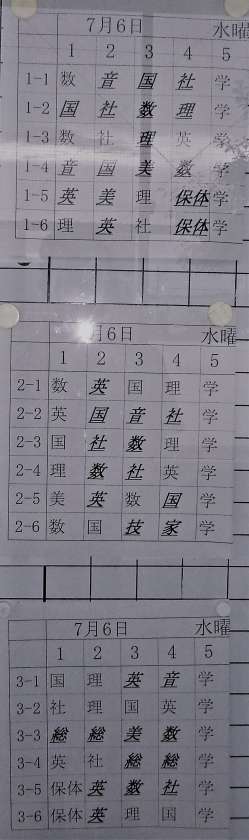 7月6日 水曜
1 2 3 4 5
1-1 数 音 国 社 学
1-2 国 社 数 理 学
1-3 数 社 理 英 学
1-4 音 国 美 数 学
1-5 英 美 理 保体 学
1-6 理 英 社 保体 学
月6日 水曜
1 2 3 4 5
2-1 数 英 国 理 学
2-2 英 国 音 社 学
2-3 国 社 数 理 学
2-4 理 数 社 英 学
2-5 美 英 数 国 学
2-6 数 国 技 家 学
7月6日 水曜
1 2 3 4 5
3-1 国 理 英 音 学
3-2 社 理 国 英 学
3-3 総 総 美 数 学
3-4 英 社 総 総 学
3-5 保体 英 数 社 学
3-6 保体 英 理 国 学